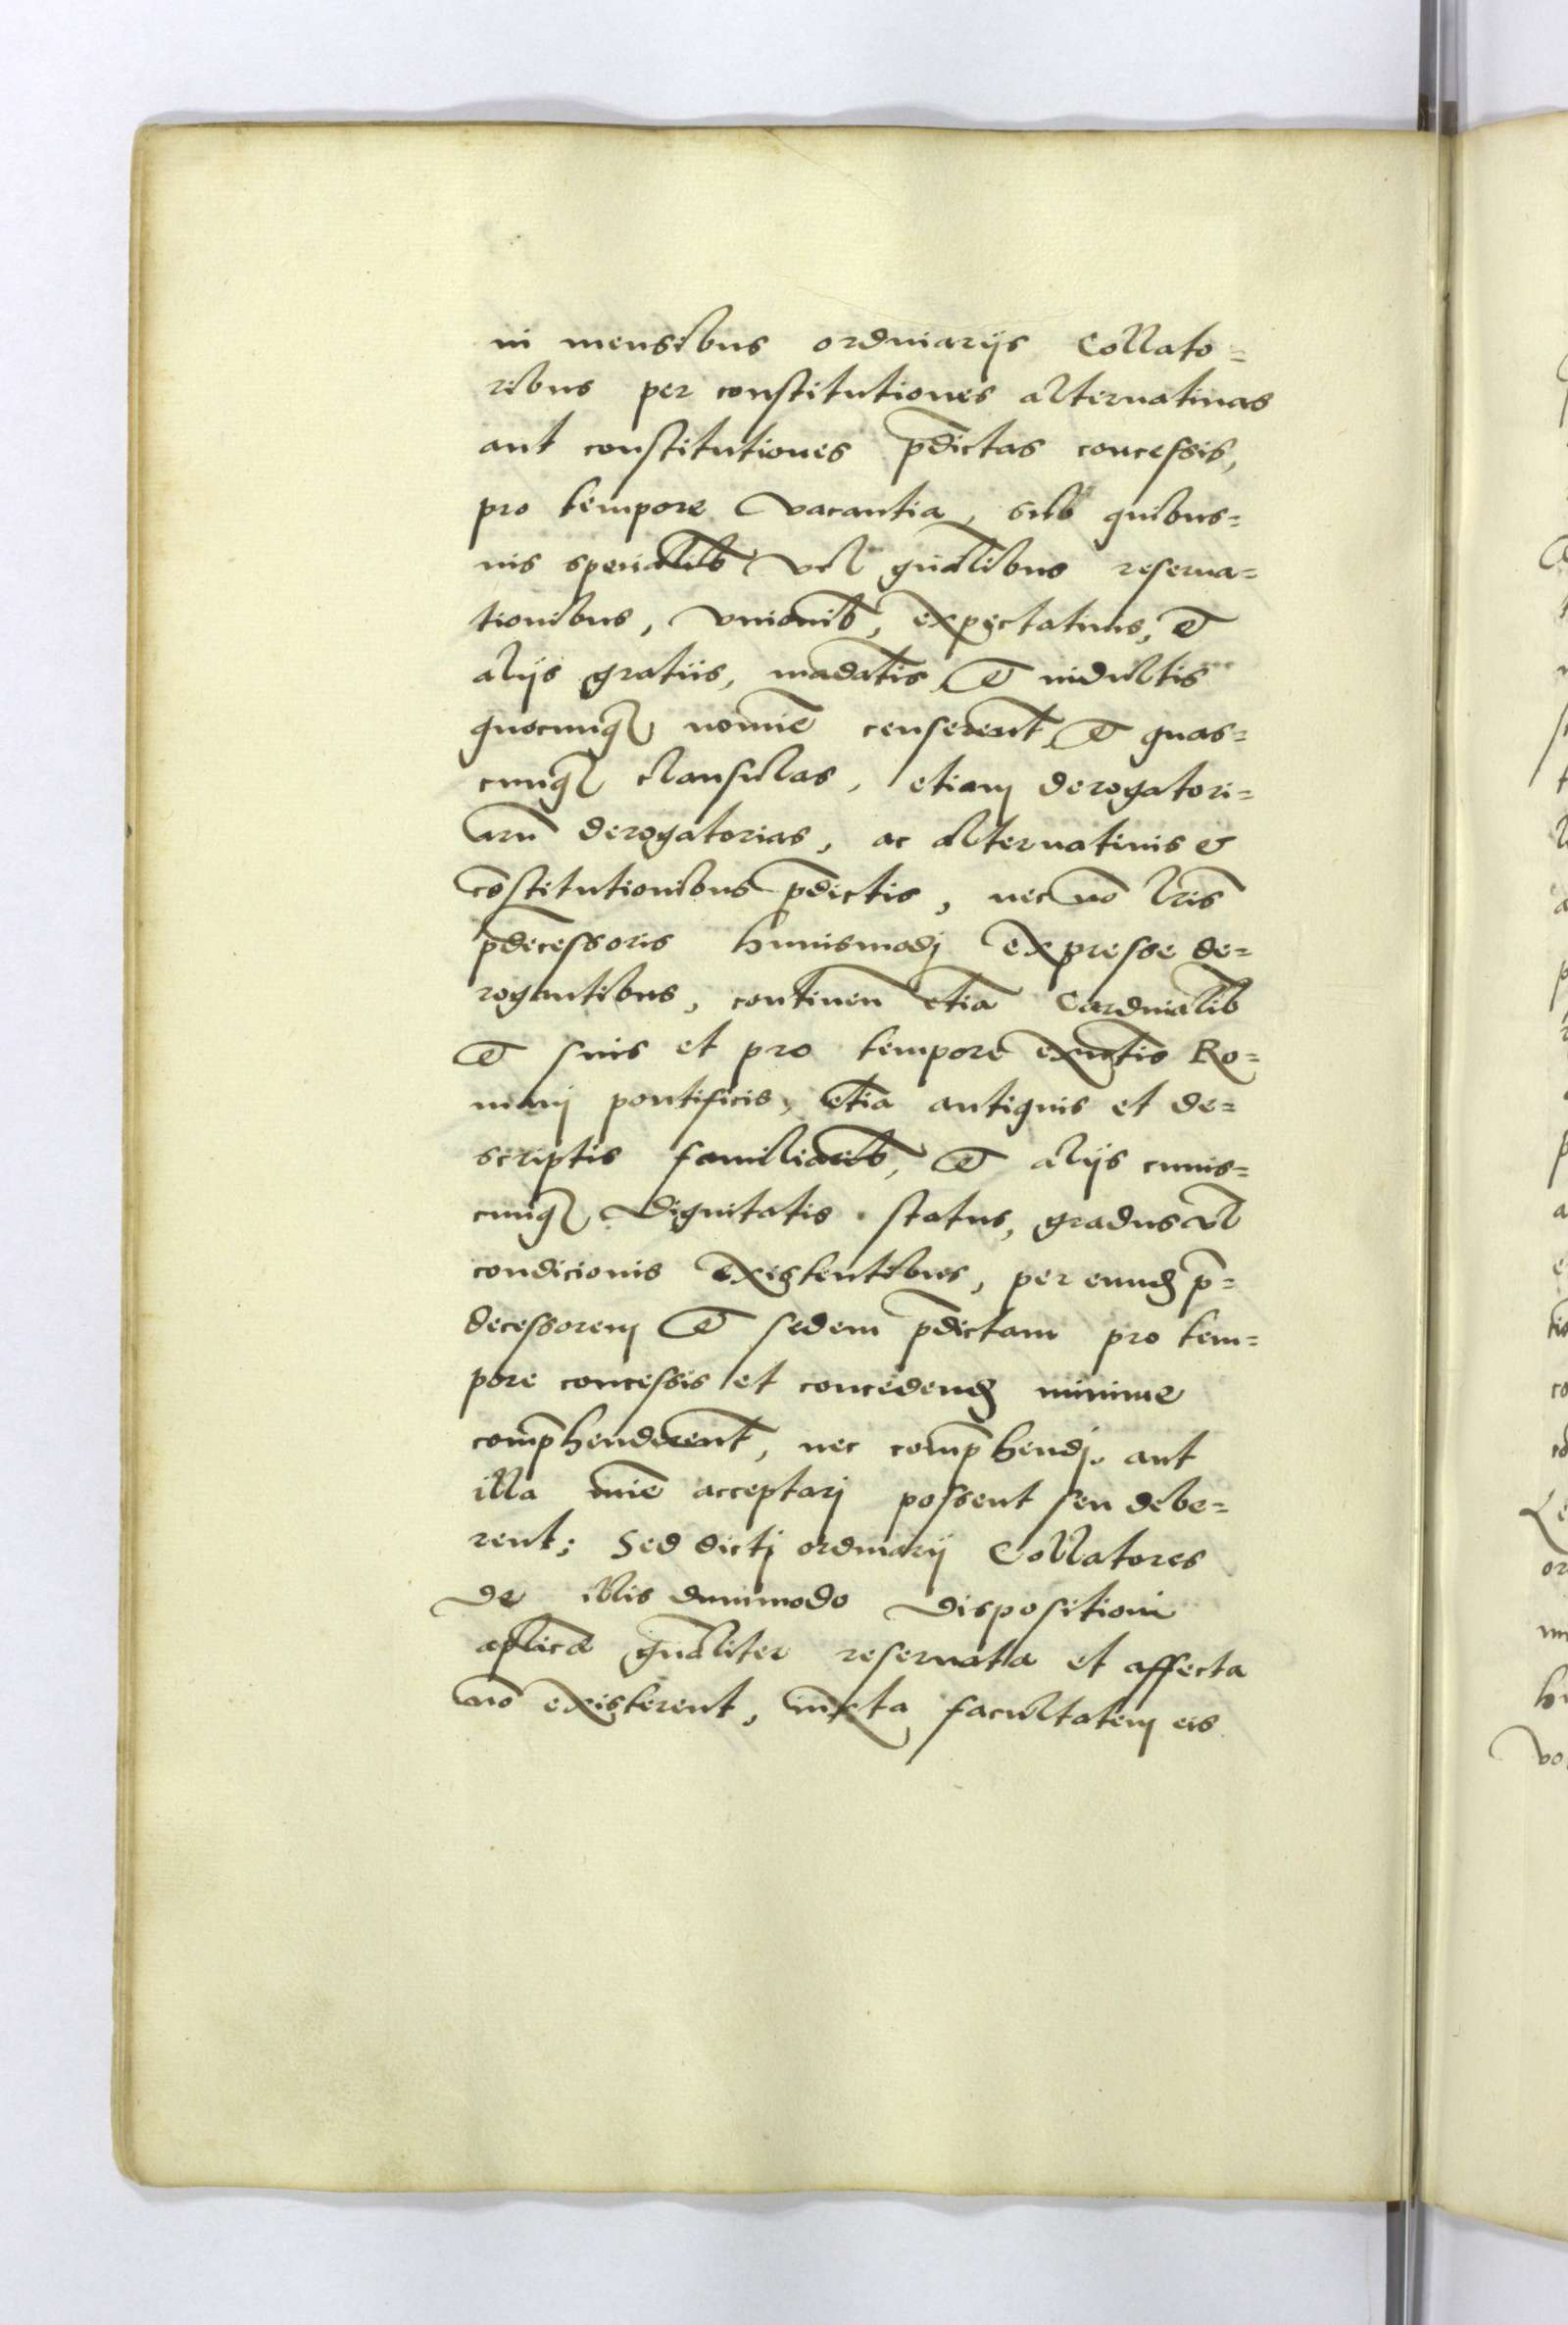 in mensibus ordinarijs Collato=
ribus per constitutiones alternatiuas
aut constitutiones p̄dictas concessis,
pro tempore vacantia, sub quibus=
uis specialib vel gn̄alibus reserua=
tionibus, vnionib, expectatiuis, et
alijs gratijs, mādatis et indultis
quocunq nomīe censerent et quas=
cunq clausulas, etiam derogatori=
arū derogatorias, ac alternatiuis et
cōstitutionibus p̄dictis, nec nō lr̄is
p̄decessoris huiusmodj expresse de=
rogantibus, continen̄ etiā Cardinalib
et suis et pro tempore exn̄tis Ro=
manj pontificis, etiā antiquis et de=
scriptis familiarib, et alijs cuius=
cunq dignitatis status, gradus vl
condicionis existentibus, per eund p̄=
decessorem et sedem p̄dictam pro tem=
pore concessis et concedend minime
comp̄henderent, nec comp̄hendj aut
illa mīe acceptarj possent seu debe=
rent; Sed dictj ordinarij Collatores
de illis dummodo dispositioni
aplicæ gn̄aliter reseruata et affecta
nō existerent, iuxta facultatem eis